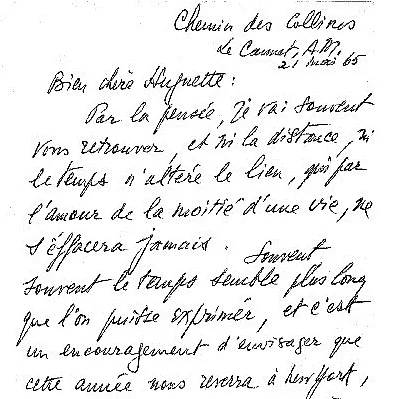 Chemin des Collines
Le Cannet, A.M.
21 mai 65
Bien chère Huguette :
Par la pensée, je vai souvent
vous retrouver, et ni la distance, ni
le temps n'altère le lien, qui par
l'amour de la moitié d'une vie, ne
s'éffacera jamais. Souvent
souvent le temps semble plus long
que l'on puisse exprimér, et c'est
un encouragement d'envisager que
cette année nous reverra à